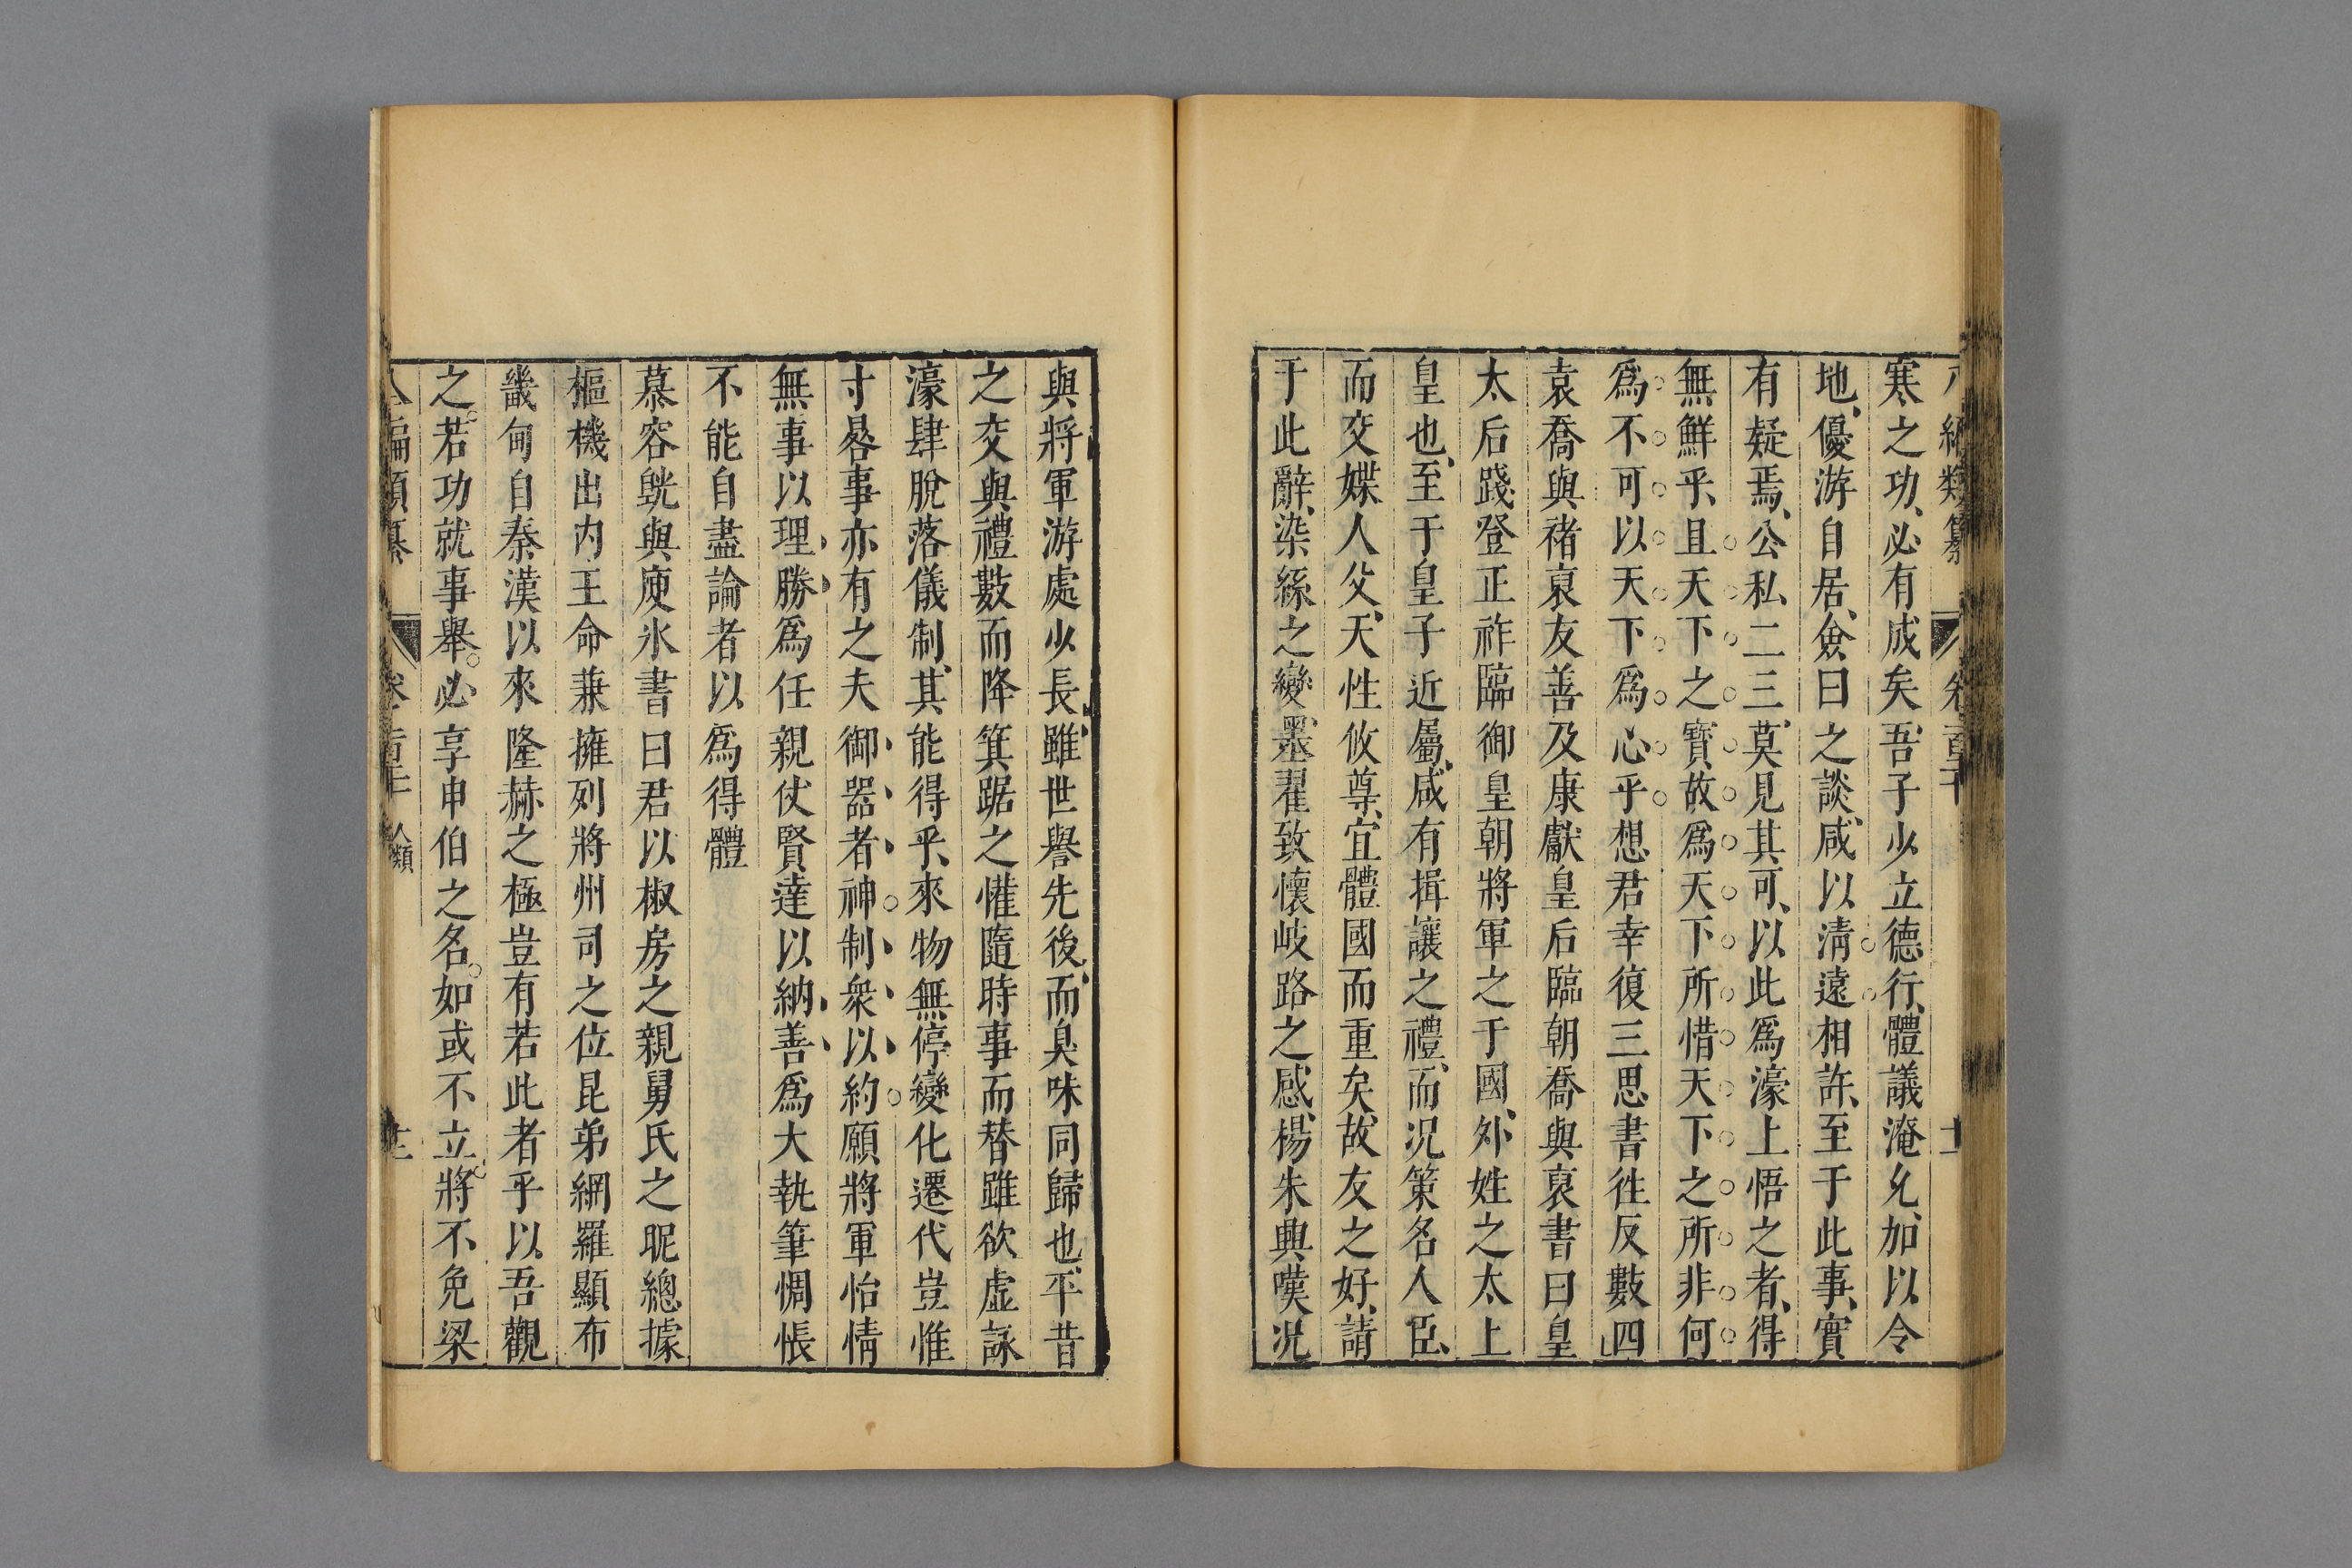 寒之功必有成矣吾子少立德行體議淹允加以令
地優游自居僉曰之談咸以清遠相許至于此事實
有疑焉公私二三莫見其可以此爲濠上悟之者得
無鮮乎且天下之寶故爲天下所惜天下之所非何
爲不可以天下爲心乎想君幸復三思書徃反數四
袁喬與褚裒友善及康獻皇后臨朝喬與裒書曰皇
太后踐登正祚臨御皇朝將軍之于國外姓之太上
皇也至于皇子近屬咸有揖讓之禮而况策名人臣
而交媟人父天性攸尊宜體國而重矣故友之好請
于此辭染絲之變墨翟致懷岐路之感楊朱興嘆况
與將軍游處少長雖世譽先後而臭味同歸也平昔
之交與禮數而降箕踞之懽隨時事而替雖欲虛詠
濠肆脫落儀制其能得乎來物無停變化遷代豈惟
寸晷事亦有之夫御器者神制衆以約願將軍怡情
無事以理勝爲任親仗賢達以納善爲大執筆惆悵
不能自盡論者以爲得體
慕容皝與庾氷書曰君以椒房之親舅氏之昵總據
樞機出内王命兼擁列將州司之位昆弟網羅顯布
畿甸自秦漢以來隆赫之極豈有若此者乎以吾觀
之若功就事舉必享申伯之名如或不立將不免梁